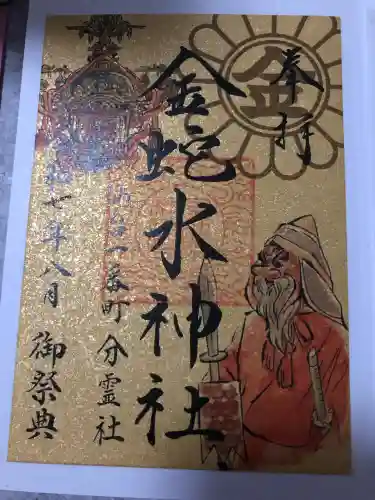 奉拝
金蛇水神社
仙台一番町分霊社
七年八月
御祭典